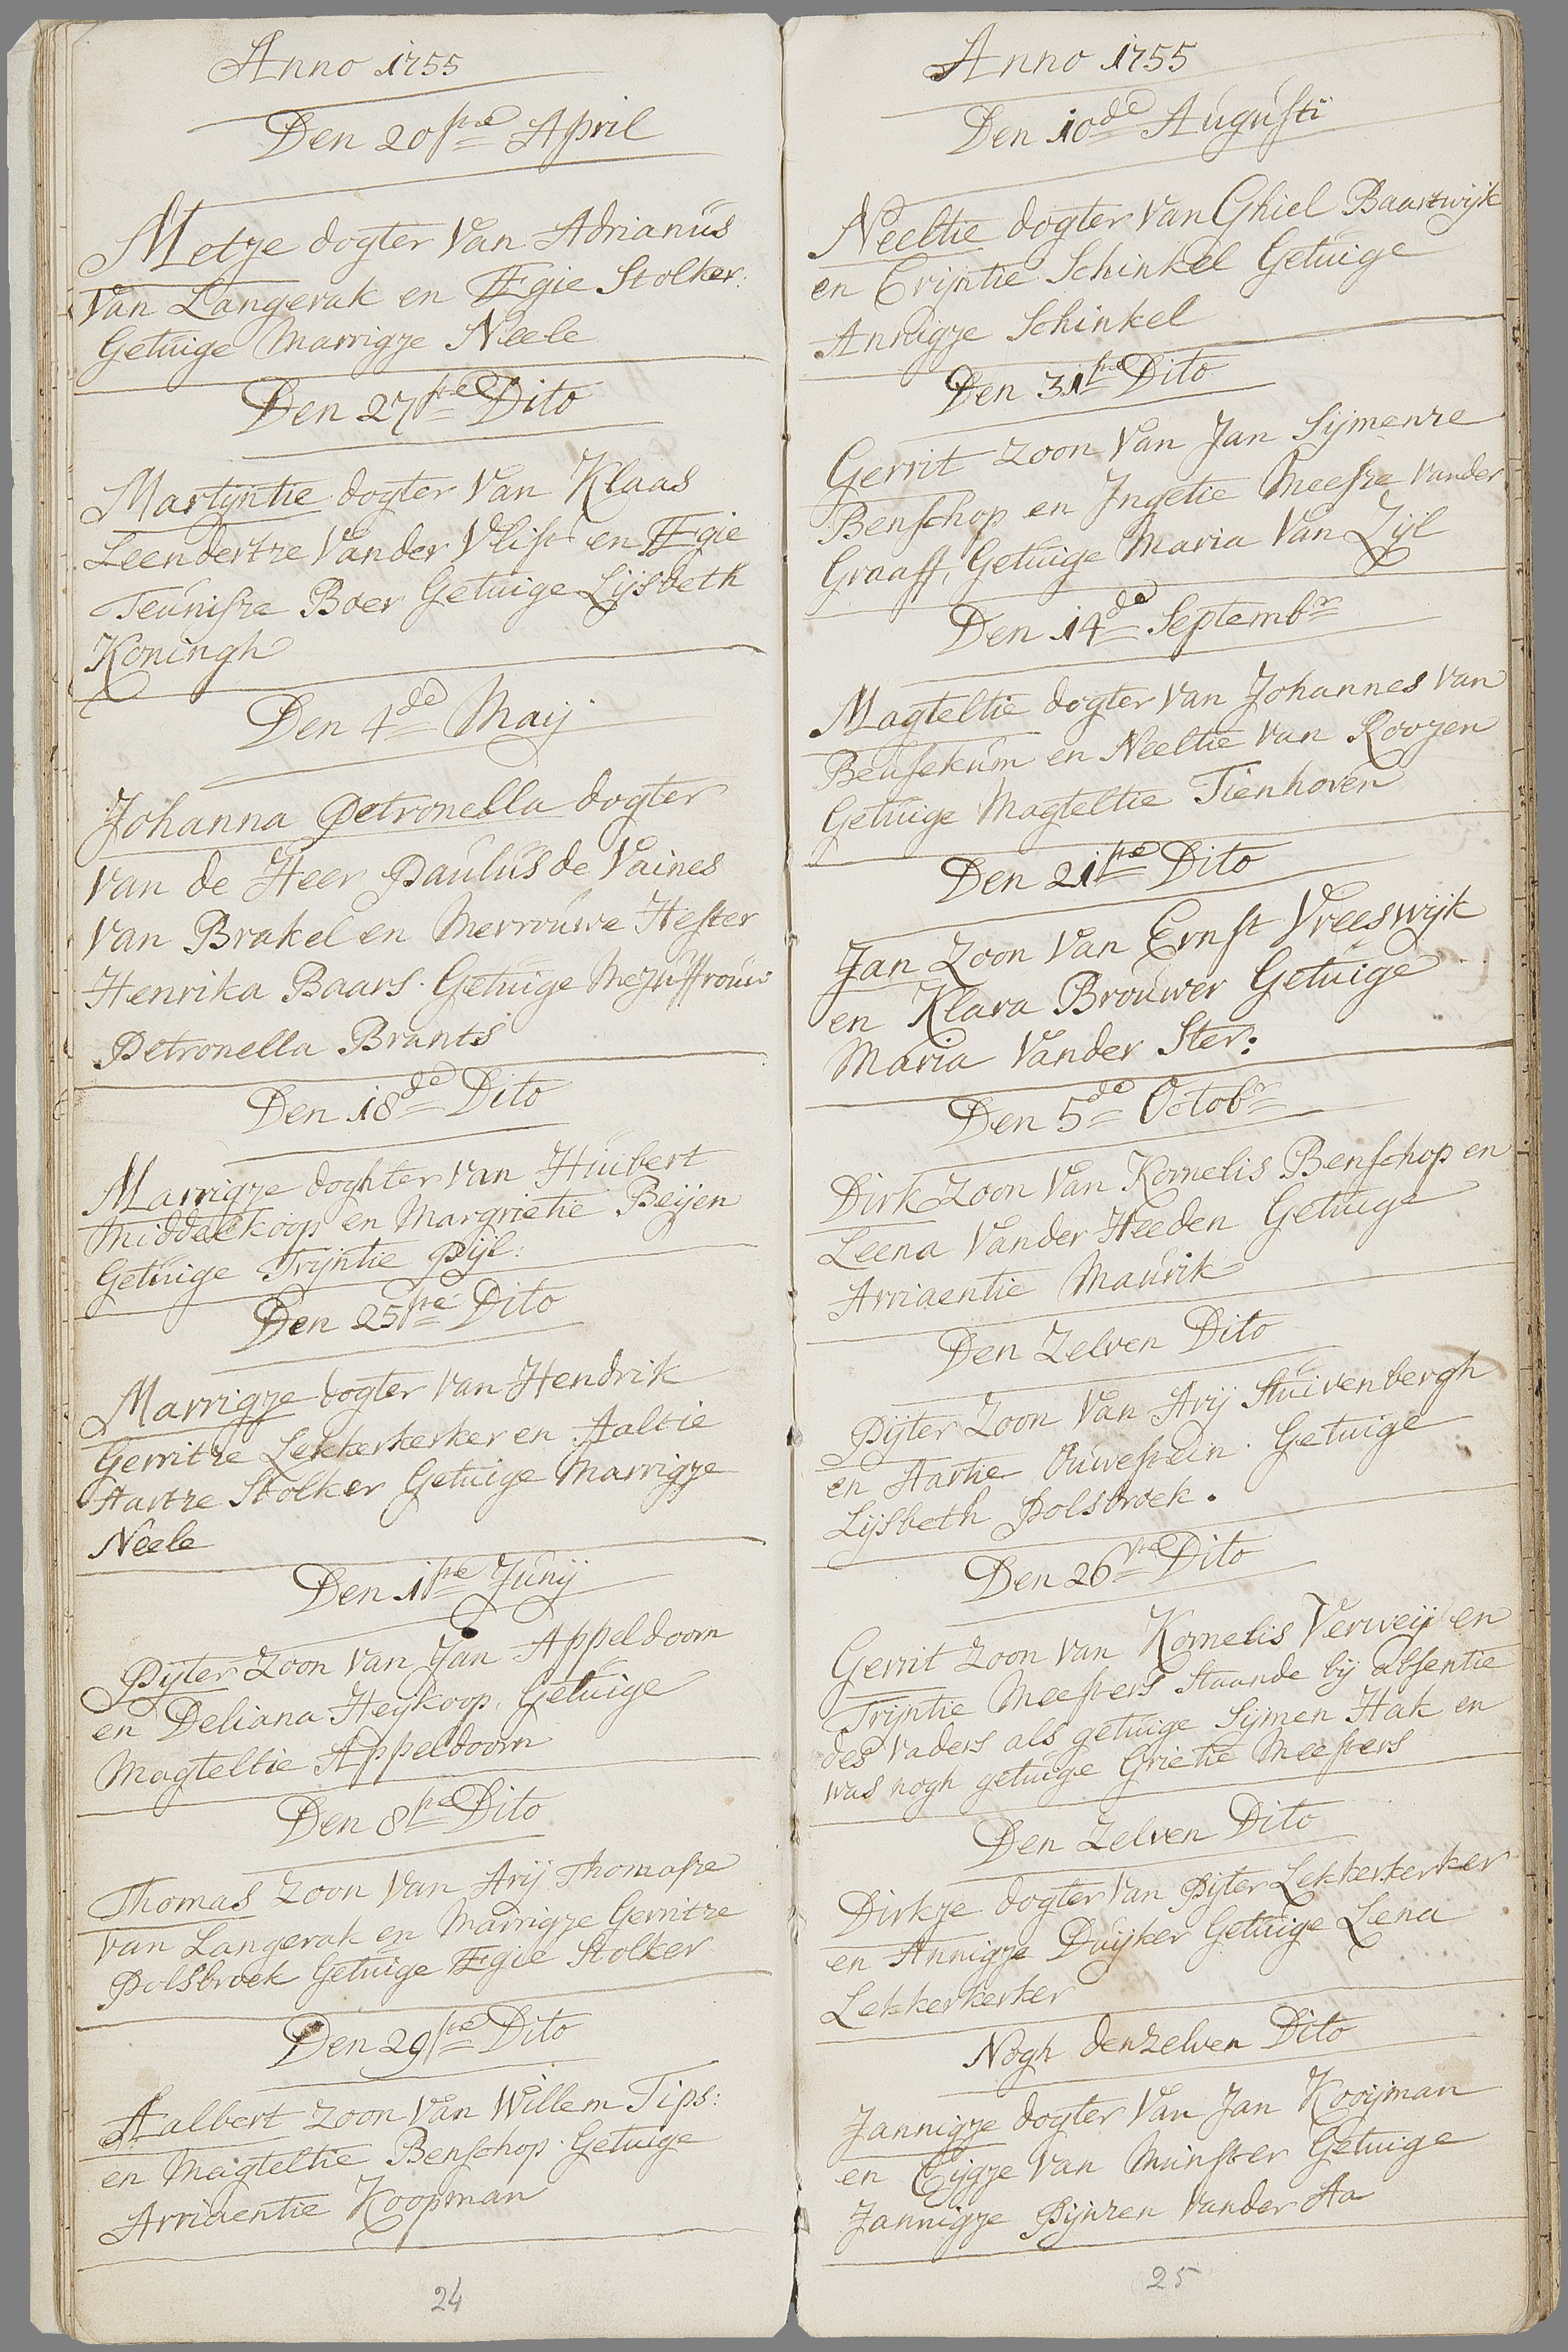 Anno 1755
Den 20ste April
Metje dogter van Adrianus
van Langerak en Ægie Stolker:
Getuige Marrigje Neele
Den 27ste Dito
Martijntie dogter van Klaas
Leendertze vander Vlist en Ægie
Teunisze Boer Getuige Lijsbeth
Koningh
Den 4de Maij
Johanna Petronella dogter
van de Heer Paulus de Vaines
van Brakel en Mevrouwe Hester
Henrika Baars. Getuige Mejuffrouw
Petronella Brants
Den 18de Dito
Marrigje doghter van Huibert
Middelkoop en Margrietie Beijen
Getuige Trijntie Pijl:
Den 25ste Dito
Marrigje dogter van Hendrik
Gerritze Lekkerkerker en Aaltie
Aartze Stolker Getuige Marrigje
Neele
Den 1ste Junij
Pijter Zoon van Jan Appeldoorn
en Deliana Heykoop, Getuige
Magteltie Appeldoorn
Den 8ste Dito
Thomas Zoon van Arij Thomasze
van Langerak en Marrigje Gerritze
Polsbroek Getuige Ægie Stolker
Den 29ste Dito
Aalbert Zoon van Willem Tips:
en Magteltie Benschop. Getuige
Arriaentie Koopman
24
Anno 1755
Den 10de Augusti
Neeltie dogter van Ghiel Baartwijk
en Crijntie Schinkel Getuige
Annigje Schinkel
Den 31ste Dito
Gerrit Zoon van Jan Sijmenze
Benschop en Ingetie Meesze vander
Graaff, Getuige Maria van Zijl
Den 14de Septembr
Magteltie dogter van Johannes van
Beusekum en Neeltie van Roojen
Getuige Magteltie Tienhoven
Den 21ste Dito
Jan Zoon van Ernst Vreeswijk
en Klara Brouwer Getuige
Maria vander Ster:
Den 5de Octobr
Dirk Zoon van Kornelis Benschop en
Leena vander Heeden Getuige
Arriaentie Maurik
Den Zelven Dito
Pijter Zoon van Arij Stuivenbergh
en Aartie Ouwestein. Getuige
Lijsbeth Polsbroek.
Den 26ste Dito
Gerrit Zoon van Kornelis Verweij en
Trijntie Meesters Staande bij absentie
des vaders als getuige Sijmen Hak en
was nogh getuige Grietie Meesters
Den Zelven Dito
Dirkje dogter van Pijter Lekkerkerker
en Annigje Duijker Getuige Lena
Lekkerkerker
Nogh denzelven Dito
Jannigje dogter van Jan Kooijman
en Cijgje van Munster Getuige
Jannigje Pijnzen vander Aa
25